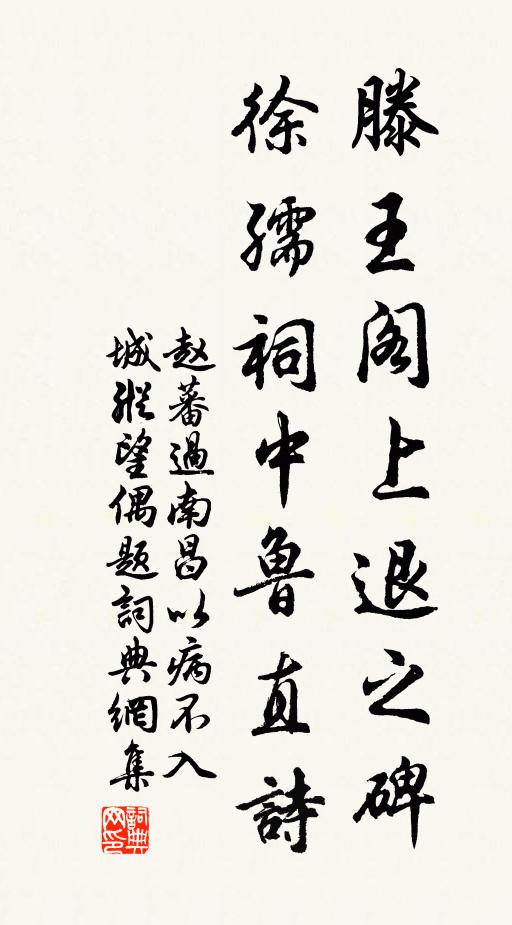 滕王阁上退之碑
徐孺祠中鲁直詩
赵蕃過南昌以病不入
城縱望偶题詞典網集
詞典网印